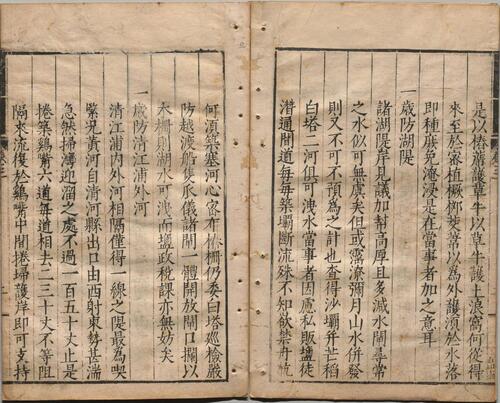 是以捲蓆護草牛以草牛護土浪窩何從得
來至於密植橛柳茭葦以為外護須於水落
即種庶免淹浸是在當事者加之意耳
一歲防湖隄
諸湖隄岸見議加幫高厚且多減水閘尋常
之水似可無虞矣但或霪潦彌月山水併發
則又不可不預為之計也查得沙壩并芒稻
白塔二河俱可洩水當事者因慮私販鹽徒
潛通間道每每築壩斷流殊不知欲禁舟航
何須築塞河心密布樁柵仍委白塔巡檢嚴
防越渡船隻瓜儀諸閘一體開放閘口攔以
木柵則湖水可洩而鹽政稅課亦無妨矣
一歲防清江浦外河
清江浦內外河相隔僅得一線之隄最為喫
緊況黃河自清河縣出口由西射東勢甚湍
急然掃灣迎溜之處不過一百五十丈止是
捲築雞嘴六道每道相去二三十丈不等阻
隔來流復於雞嘴中間捲掃護岸即可支持